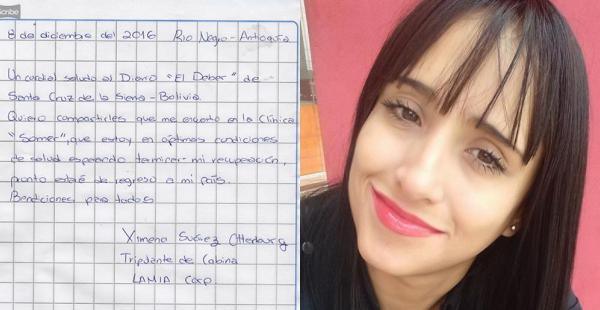 cribe
8 de diciembre del 2016 Rio Negro-Antioquia
Un cordial saludo al Diario "El Deber" de
Santa Cruz de la Sierra-Bolivia.
Quiero compartirles que me encuentro en la Clínica
"Somer", que estoy en optimas condiciones
de salud esperando terminar mi recuperación,
pronto estaré de regreso a mi país.
Bendiciones para todos
Ximena Suárez Otterburg
Tripulante de Cabina
LAMIA Corp.